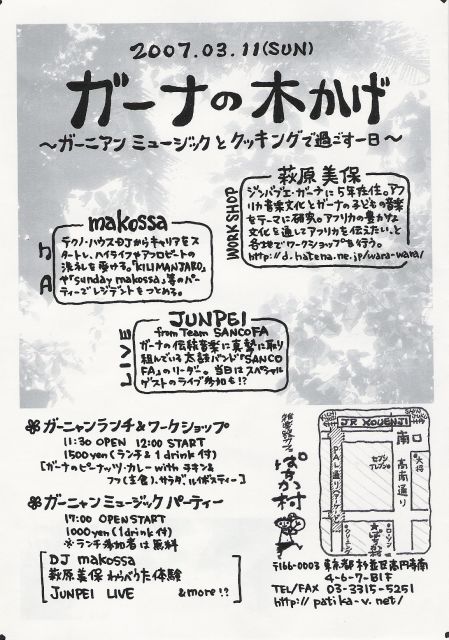 2007.03.11(SUN)
ガーナの木かげ
〜ガーニアンミュージックとクッキングで過ごす一日〜
WORKSHOP
萩原美保
ジンバブエ・ガーナに5年在住。アフ
リカ音楽文化とガーナの子どもの音楽
をテーマに研究。アフリカの豊かな
文化を通してアフリカを伝えたい。と
各地でワークショップを行う。
http://d.hatena.ne.jp/wara-wara/
makossa
テクノ・ハウスDJからキャリアをス
タートし、ハイライフやアフロビートの
洗礼を受ける。「KILIMANJARO」
や「Sunday makossa」等のパー
ティーでレジデントをつとめる。
LIVE
JUNPEI
from Team SANCOFA
ガーナの伝統音楽に真摯に取り
組んでいる太鼓バンド「SANCO
FA」のリーダー。当日はスペシャル
ゲストのライブ参加も!?
ガーニャンランチ&ワークショップ
11:30 OPEN 12:00 START
1500yen(ランチ&1drink付)
[ガーナのピーナッツ・カレー with チキン&
フフ(主食)、サラダ、ルイボスティー]
ガーニャンミュージックパーティー
17:00 OPEN START
1000yen(1drink付)
※ランチ参加者は無料
DJ makossa
萩原美保わらべうた体験
JUNPEI LIVE &more!?
ぱちか村
JR KOUENJI
南口
PAL通り(アーケード)
セブン
イレブン
高南通り
大将
ローソン
〒166-0003 東京都杉並区高円寺南
4-6-7-B1F
TEL/FAX 03-3315-5251
http://patika-v.net/